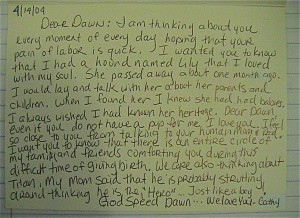 4/19/04
Dear Dawn: I am thinking about you
every moment of every day hoping that your
pain of labor is quick. I wanted you to know
that I had a hound named Lily that I loved
with my soul. She passed away about one month ago.
I would lay and talk with her about her parents and
children. When I found her I knew she had had babies.
I always wished I had known her heritage. Dear Dawn,
even if you do not have a pup for me. I love you. I feel
so close to you from talking to your human mama
I want you to know that there is an entire circle of
my family and friends comforting you during this
difficult time of giving birth. We are also thinking about
Titan. My Mom said that he is probably strutting
around thinking he is the "Hoco". Just like a boy!
God Speed Dawn... We love Ya - Cathy